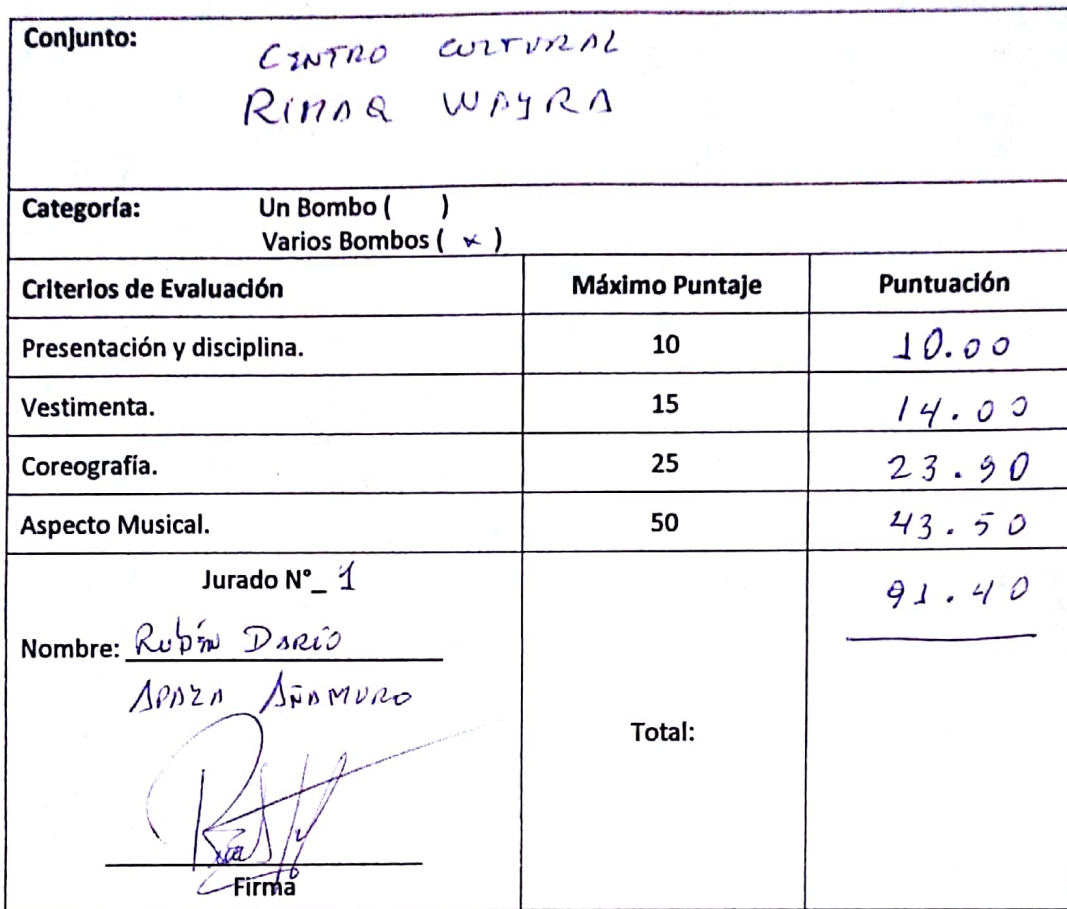 Conjunto: CENTRO CULTURAL
RIMAQ WAYRA
Categoría: Un Bombo ( )
Varios Bombos ( x )
Criterios de Evaluación Máximo Puntaje Puntuación
Presentación y disciplina. 10 10.00
Vestimenta. 15 14.00
Coreografía. 25 23.90
Aspecto Musical. 50 43.50
Jurado N°_ 1 91.40
Nombre: Rubén DARÍO
APAZA AÑAMURO
Total:
Firma